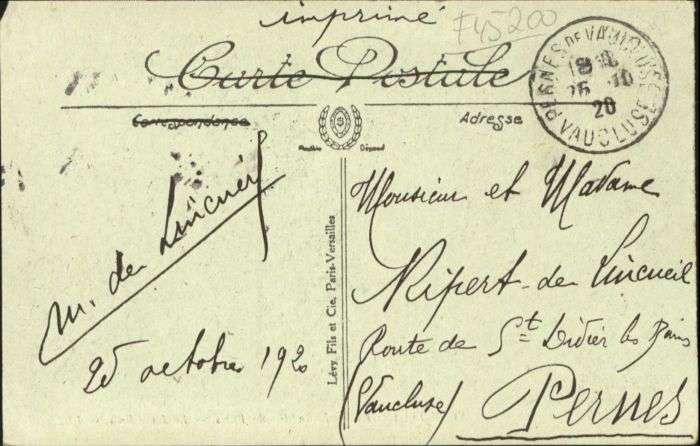 imprimé
E45200
Carte Postale
Correspondance
Adresse
PERNES DE VAUCLUSE
18
25 10
20
VAUCLUSE
Modèle Déposé
Lévy, Fils et Cie, Paris-Versailles
M. de Lincueil
25 octobre 1920
Monsieur et Madame
Ripert-de Lincueil
Route de St Didier les Bains
(Vaucluse) Pernes